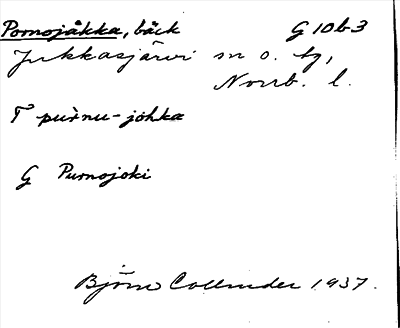 Pornojåkka, bäck G 10b3
Jukkasjärvi sn o. tg,
Norrb. l.
F purnu-johka
G Purnojoki
Björn Collinder 1937.